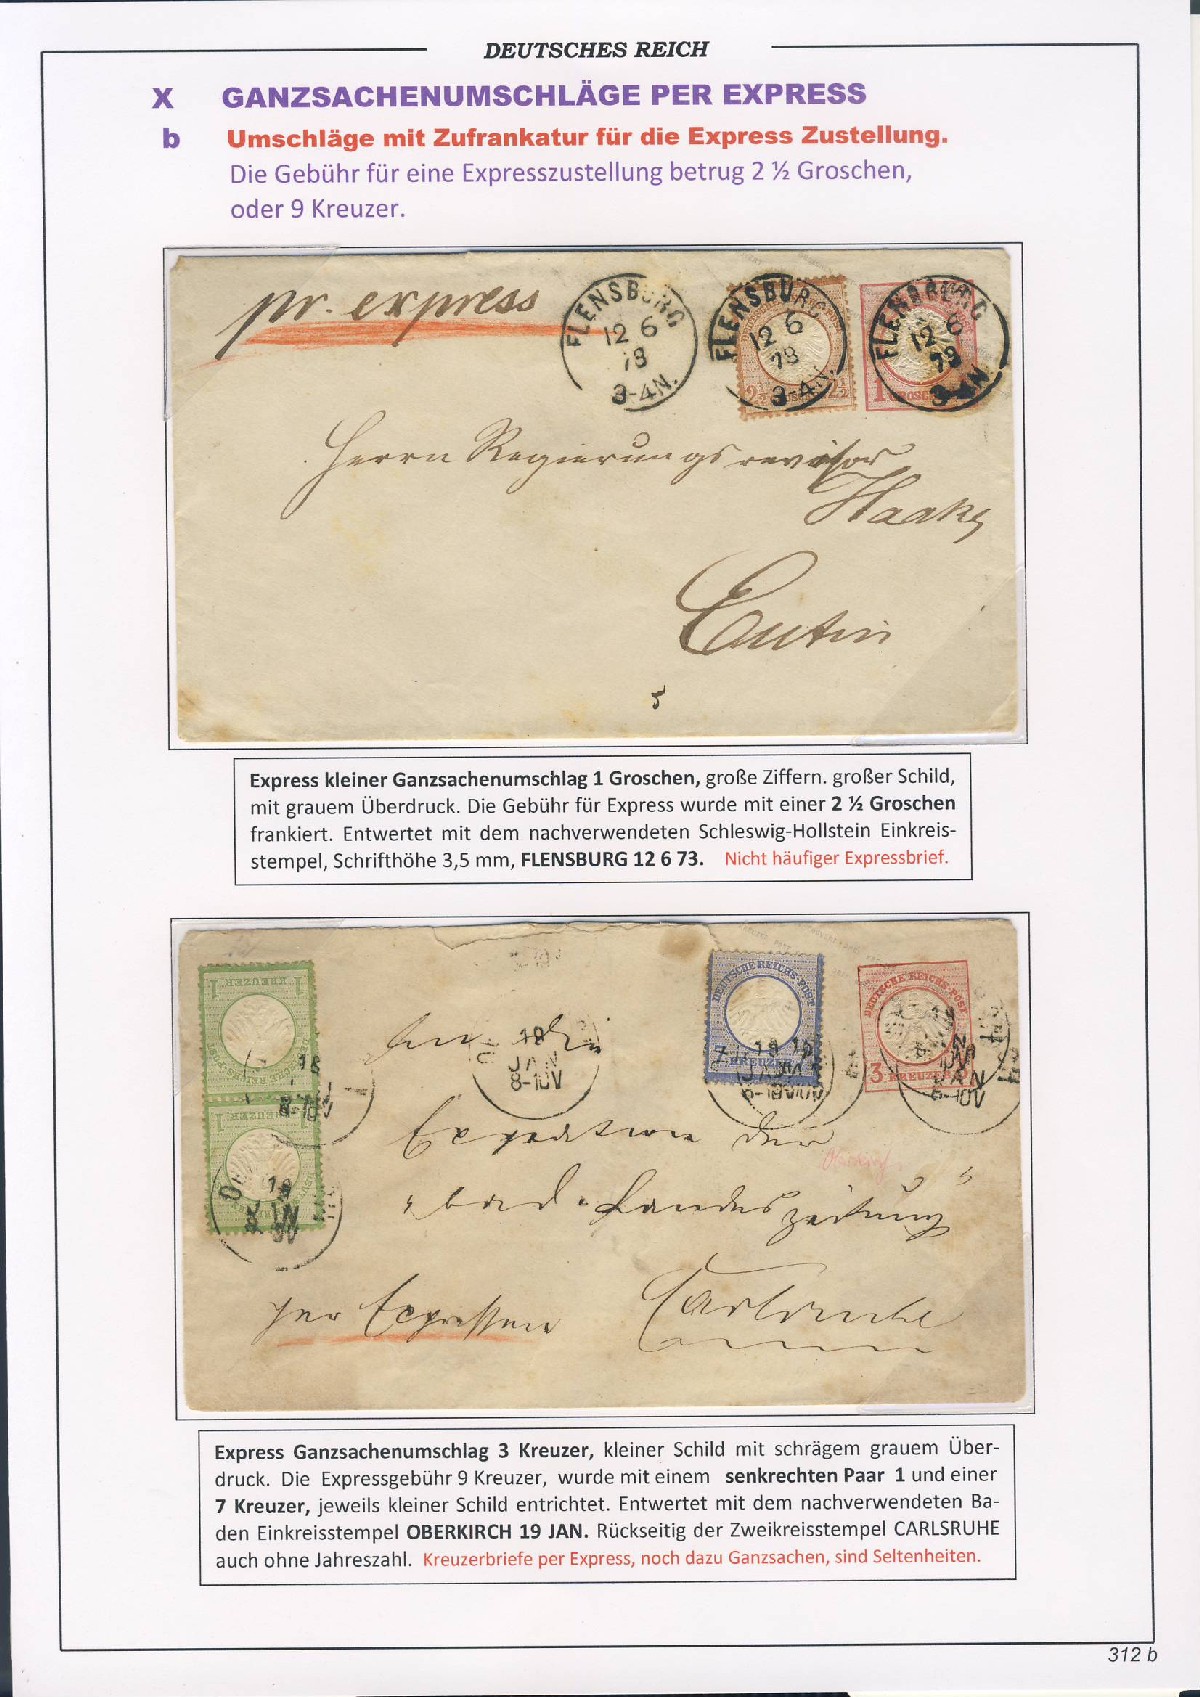 DEUTSCHES REICH
X GANZSACHENUMSCHLÄGE PER EXPRESS
b Umschläge mit Zufrankatur für die Express Zustellung.
Die Gebühr für eine Expresszustellung betrug 2 ½ Groschen,
oder 9 Kreuzer.
pr. express
FLENSBURG
12 6
73
3-4N.
FLENSBURG
12 6
73
3-4N.
FLENSBURG
12 6
73
3-4N.
2½ 2½
1 GROSCHEN
Herrn Regierungsrevisor
Haake
Eutin
5
Express kleiner Ganzsachenumschlag 1 Groschen, große Ziffern. großer Schild,
mit grauem Überdruck. Die Gebühr für Express wurde mit einer 2 ½ Groschen
frankiert. Entwertet mit dem nachverwendeten Schleswig-Hollstein Einkreis-
stempel, Schrifthöhe 3,5 mm, FLENSBURG 12 6 73. Nicht häufiger Expressbrief.
1 KREUZER 1
DEUTSCHE REICHS-POST
7 KREUZER
DEUTSCHE REICHS-POST
3 KREUZER
1 KREUZER 1
19
JAN
8-10V
An die
Expedition der
"bad. Landeszeitung"
per Expressen Carlsruhe
Express Ganzsachenumschlag 3 Kreuzer, kleiner Schild mit schrägem grauem Über-
druck. Die Expressgebühr 9 Kreuzer, wurde mit einem senkrechten Paar 1 und einer
7 Kreuzer, jeweils kleiner Schild entrichtet. Entwertet mit dem nachverwendeten Ba-
den Einkreisstempel OBERKIRCH 19 JAN. Rückseitig der Zweikreisstempel CARLSRUHE
auch ohne Jahreszahl. Kreuzerbriefe per Express, noch dazu Ganzsachen, sind Seltenheiten.
312 b